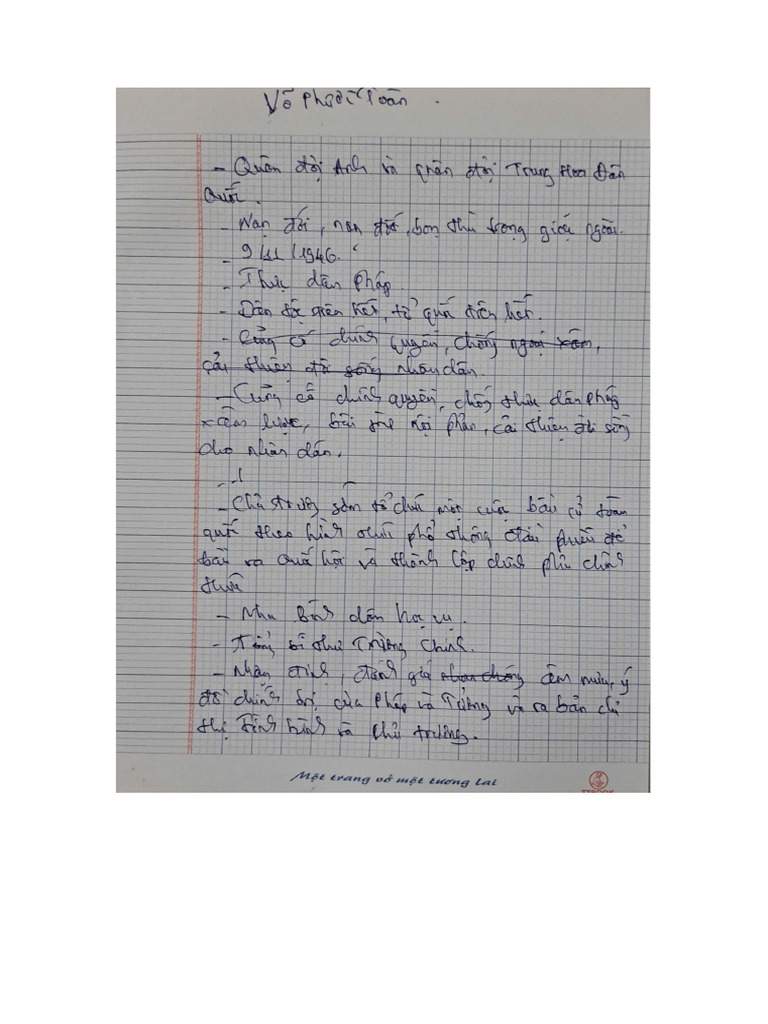 Võ Phước Toàn .
- Quân đội Anh và quân đội Trung Hoa Dân
Quốc .
- Nạn đói, nạn dốt, bọn thù trong giặc ngoài.
- 9/11/1946.
- Thực dân Pháp.
- Dân tộc trên hết, tổ quốc trên hết.
- Củng cố chính quyền, chống ngoại xâm,
cải thiện đời sống nhân dân.
- Củng cố chính quyền, chống thực dân Pháp
xâm lược, bài trừ nội phản, cải thiện đời sống
cho nhân dân.
- 1
- Chủ trương sớm tổ chức một cuộc bầu cử toàn
quốc theo hình thức phổ thông đầu phiếu để
bầu ra Quốc hội và thành lập chính phủ chính
thức
- Nha Bình dân học vụ.
- Tổng bí thư Trường Chinh.
- Nhận định, đánh giá âm mưu, ý
đồ chính trị của Pháp và Tưởng và ra bản chỉ
thị tình hình và chủ trương.
Một trang vở một tương lai